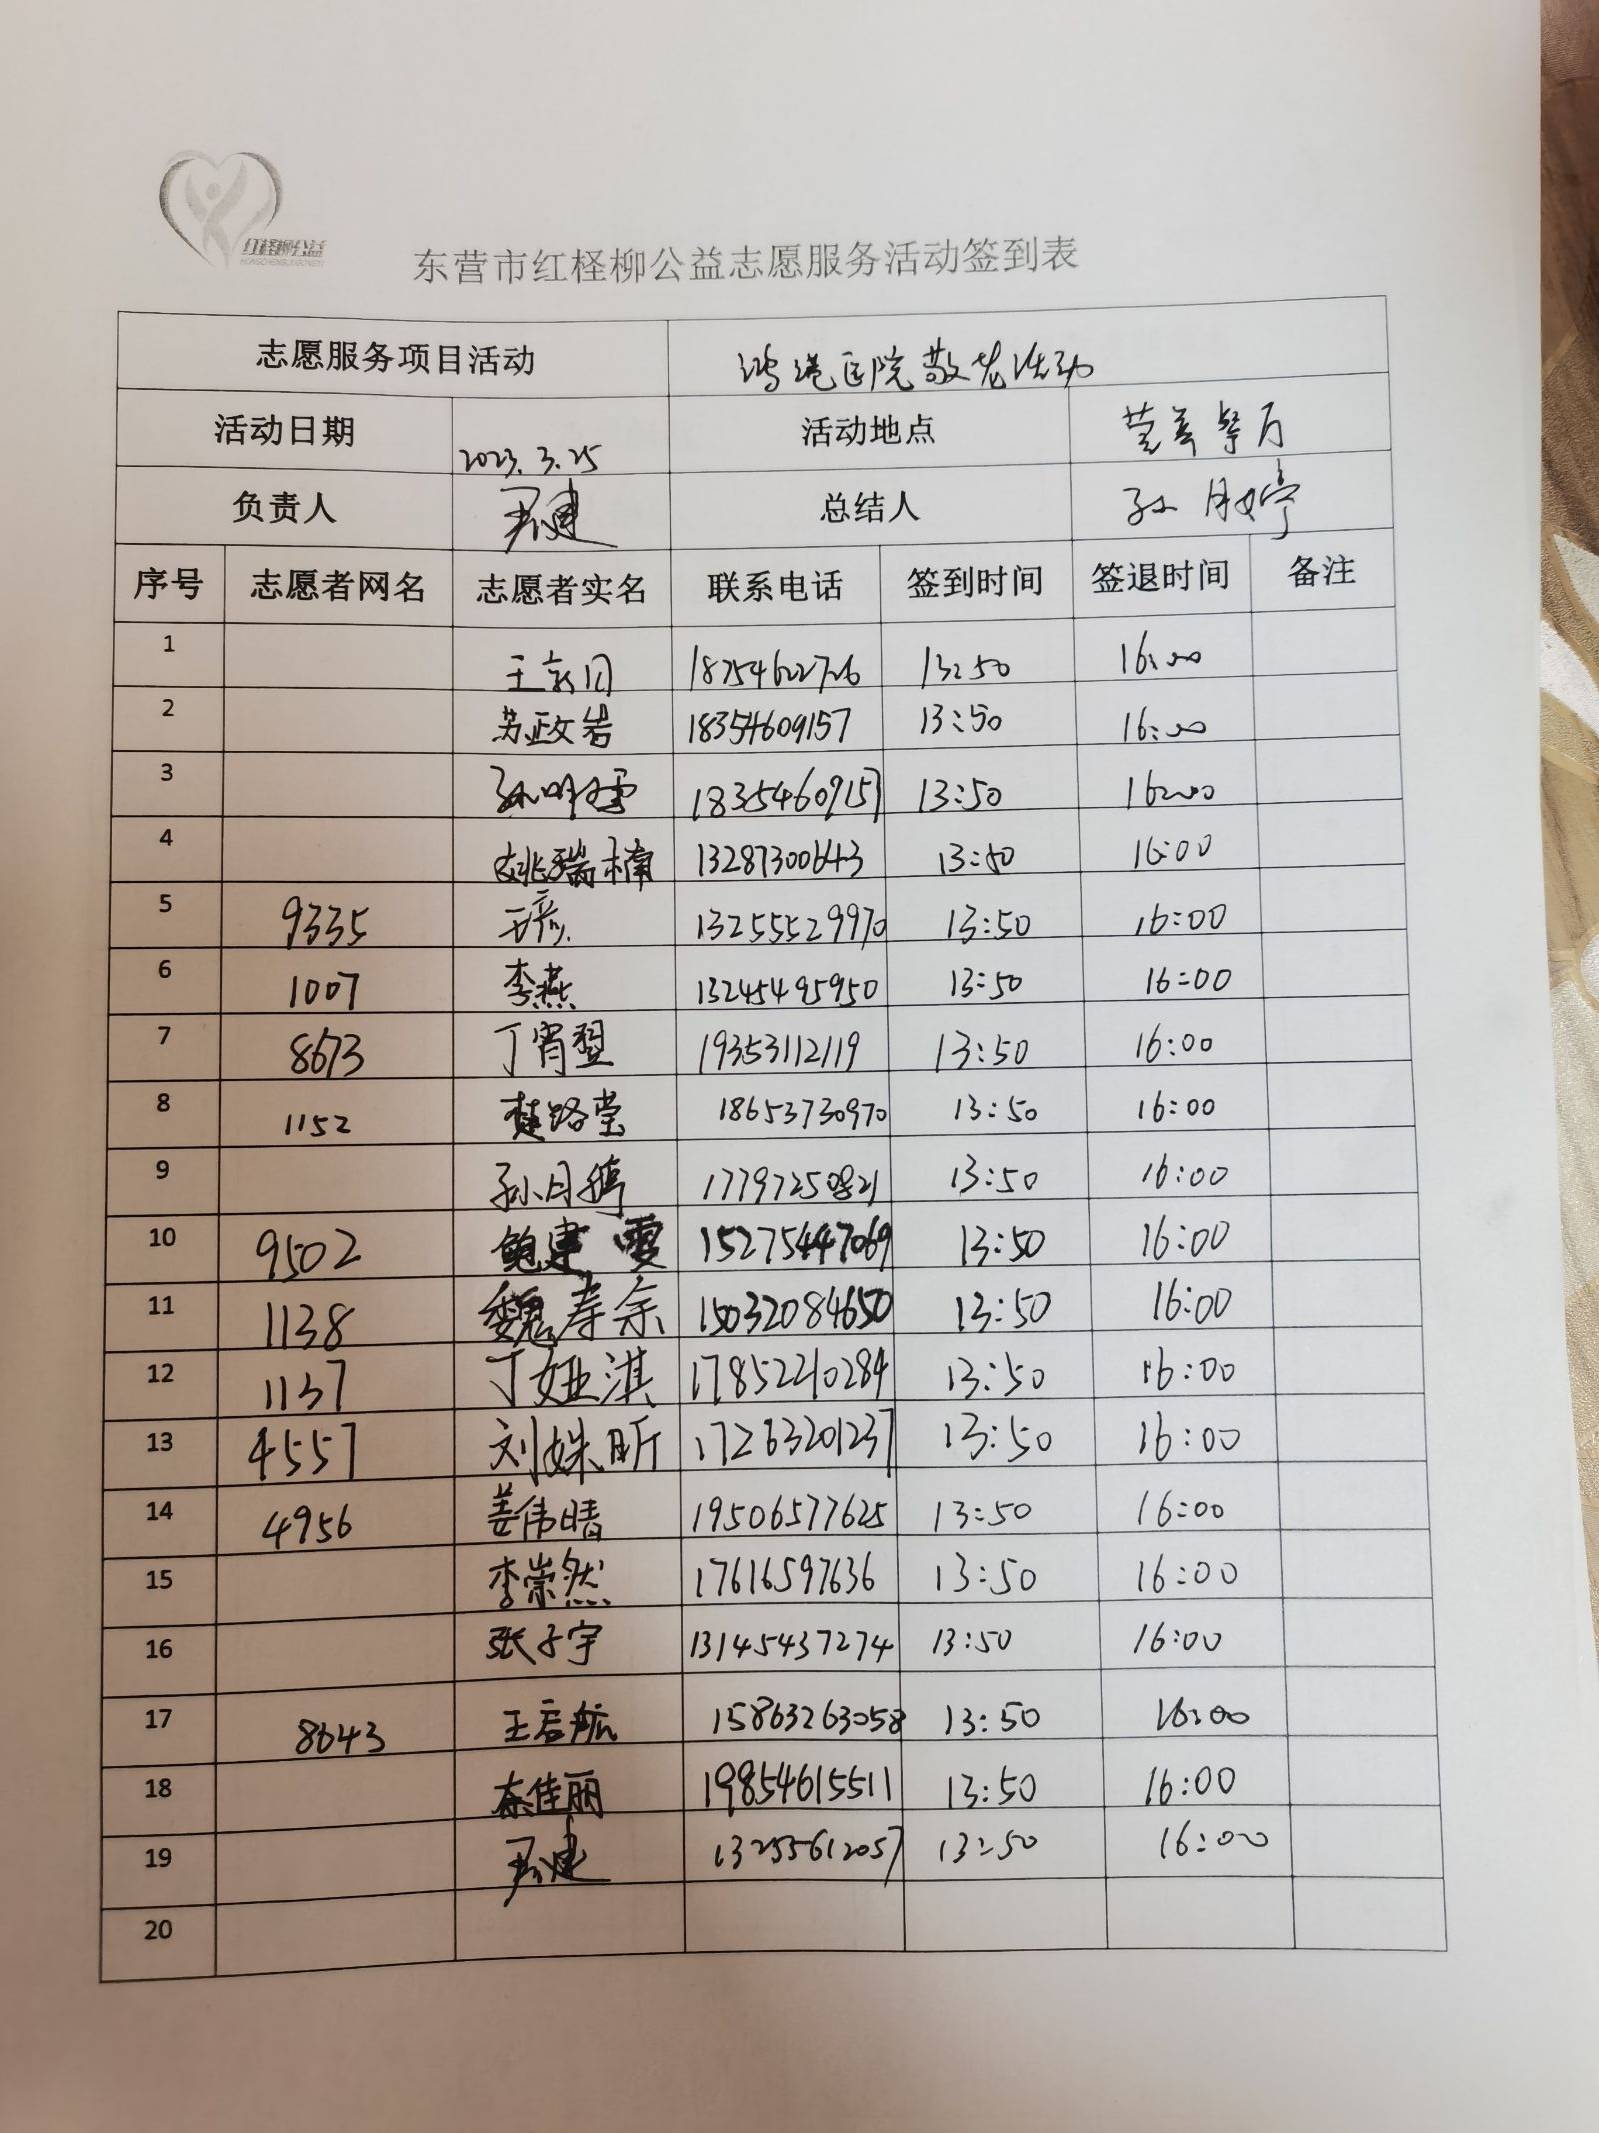 红柽柳公益
东营市红柽柳公益志愿服务活动签到表
志愿服务项目活动 鸿港医院敬老活动
活动日期 2023.3.25 活动地点
负责人 总结人 孙月婷
序号 志愿者网名 志愿者实名 联系电话 签到时间 签退时间 备注
1 18754622726 13:50 16:00
2 苏政岩 18354609157 13:50 16:00
3 孙明雪 18354609157 13:50 16:00
4 姚瑞楠 13287300643 13:50 16:00
5 9335 13255529970 13:50 16:00
6 1007 李燕 13245495950 13:50 16:00
7 8673 丁宵翌 19353112119 13:50 16:00
8 1152 楚路莹 18653730970 13:50 16:00
9 孙月婷 17797250821 13:50 16:00
10 9502 鲍建雯 15275447069 13:50 16:00
11 1138 魏寿余 15032084650 13:50 16:00
12 1137 丁娅淇 17852210284 13:50 16:00
13 4557 刘姝昕 17263201237 13:50 16:00
14 4956 姜伟晴 19506577625 13:50 16:00
15 李崇然 17616597636 13:50 16:00
16 张子宇 13145437274 13:50 16:00
17 8643 王启航 15863263058 13:50 16:00
18 佳丽 19854615511 13:50 16:00
19 13255612057 13:50 16:00
20